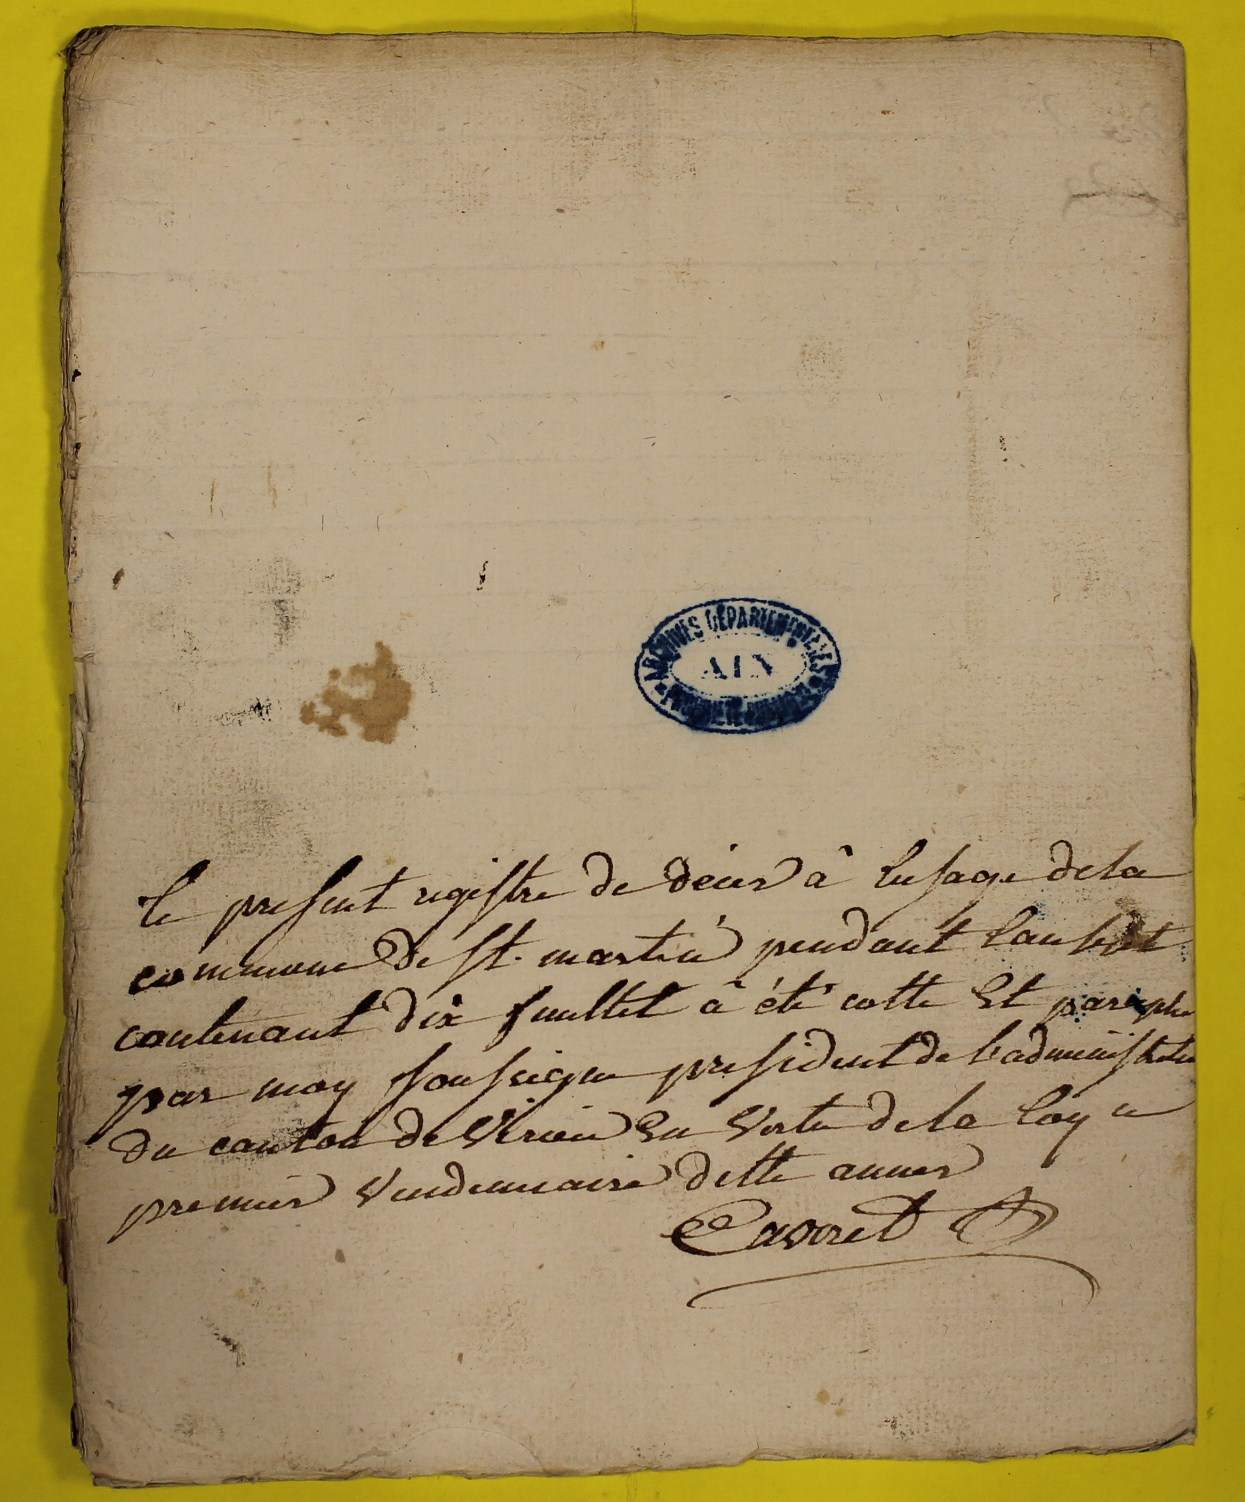 ARCHIVES DÉPARTEMENTALES
AIN
le present registre de deces à lusage de la
commune de St. martin pendant lan sept
contenant dix feuillet à été cotte Et paraphe
par moy soussigne president de l'administration
du canton de Virieu En vertu de la loy le
premier Vendemiaire dette annes
Cavoret